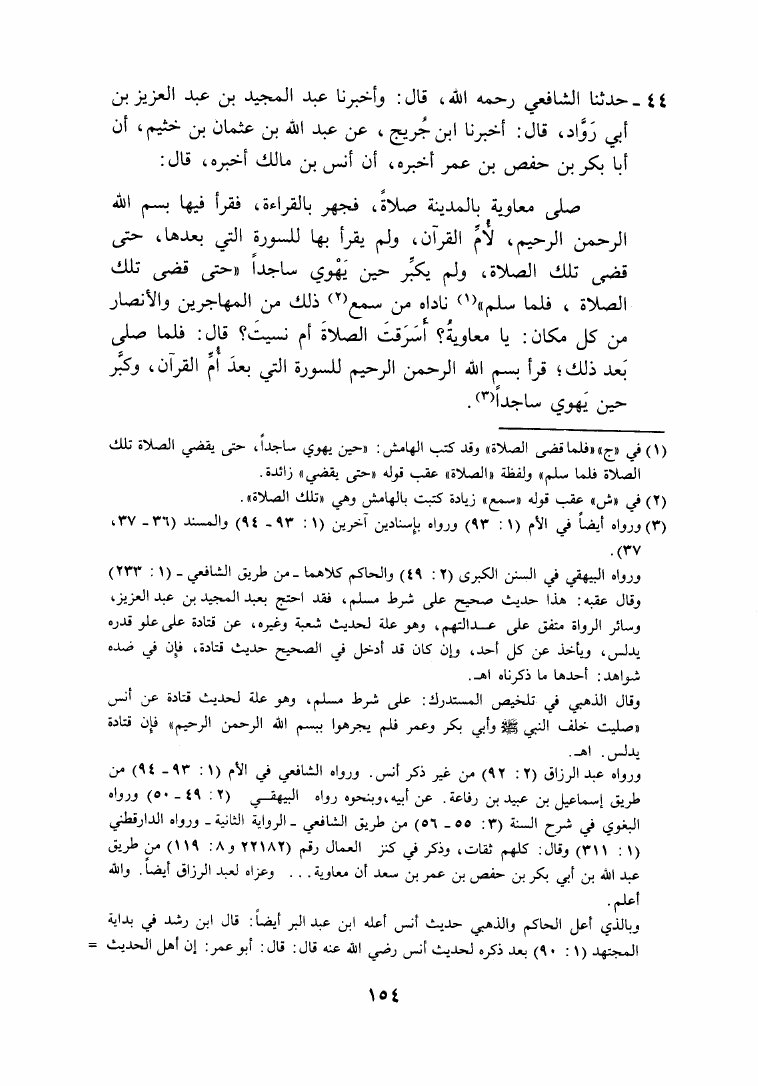 ٤٤ - حدثنا الشافعي رحمه الله، قال: وأخبرنا عبد المجيد بن عبد العزيز بن
أبي رَوَّاد، قال: أخبرنا ابن جُريج، عن عبد الله بن عثمان بن خثيم، أن
أبا بكر بن حفص بن عمر أخبره، أن أنس بن مالك أخبره، قال:
صلى معاوية بالمدينة صلاةً، فجهر بالقراءة، فقرأ فيها بسم الله
الرحمن الرحيم، لأُمِّ القرآن، ولم يقرأ بها للسورة التي بعدها، حتى
قضى تلك الصلاة، ولم يكبِّر حين يَهْوي ساجداً «حتى قضى تلك
الصلاة ، فلما سلم»(١) ناداه من سمع(٢) ذلك من المهاجرين والأنصار
من كل مكان: يا معاويةُ؟ أَسَرَقتَ الصلاةَ أم نسيتَ؟ قال: فلما صلى
بَعد ذلك؛ قرأ بسم الله الرحمن الرحيم للسورة التي بعدَ أُمِّ القرآن، وكبَّر
حين يَهوي ساجداً(٣).
(١) في «ج» «فلما قضى الصلاة» وقد كتب الهامش: «حين يهوي ساجداً، حتى يقضي الصلاة تلك
الصلاة فلما سلم» ولفظة «الصلاة» عقب قوله «حتى يقضي» زائدة.
(٢) في «ش» عقب قوله «سمع» زيادة كتبت بالهامش وهي «تلك الصلاة».
(٣) ورواه أيضاً في الأم (١: ٩٣) ورواه بإسنادين آخرين (١: ٩٣ - ٩٤) والمسند (٣٦ - ٣٧،
٣٧).
ورواه البيهقي في السنن الكبرى (٢: ٤٩) والحاكم كلاهما - من طريق الشافعي - (١: ٢٣٣)
وقال عقبه: هذا حديث صحيح على شرط مسلم، فقد احتج بعبد المجيد بن عبد العزيز،
وسائر الرواة متفق على عـدالتهم، وهو علة لحديث شعبة وغيره، عن قتادة على علو قدره
يدلس، ويأخذ عن كل أحد، وإن كان قد أدخل في الصحيح حديث قتادة، فإن في ضده
شواهد: أحدها ما ذكرناه اهـ.
وقال الذهبي في تلخيص المستدرك: على شرط مسلم، وهو علة لحديث قتادة عن أنس
«صليت خلف النبي ﷺ وأبي بكر وعمر فلم يجرهوا ببسم الله الرحمن الرحيم» فإن قتادة
يدلس. اهـ.
ورواه عبد الرزاق (٢: ٩٢) من غير ذكر أنس. ورواه الشافعي في الأم (١: ٩٣ - ٩٤) من
طريق إسماعيل بن عبيد بن رفاعة. عن أبيه، وبنحوه رواه البيهقـي (٢: ٤٩ - ٥٠) ورواه
البغوي في شرح السنة (٣: ٥٥ - ٥٦) من طريق الشافعي - الرواية الثانية - ورواه الدارقطني
(١: ٣١١) وقال: كلهم ثقات، وذكر في كنز العمال رقم (٢٢١٨٢ و ٨: ١١٩) من طريق
عبد الله بن أبي بكر بن حفص بن عمر بن سعد أن معاوية... وعزاه لعبد الرزاق أيضاً. والله
أعلم.
وبالذي أعل الحاكم والذهبي حديث أنس أعله ابن عبد البر أيضاً: قال ابن رشد في بداية
المجتهد (١: ٩٠) بعد ذكره لحديث أنس رضي الله عنه قال: قال: أبو عمر: إن أهل الحديث =
١٥٤